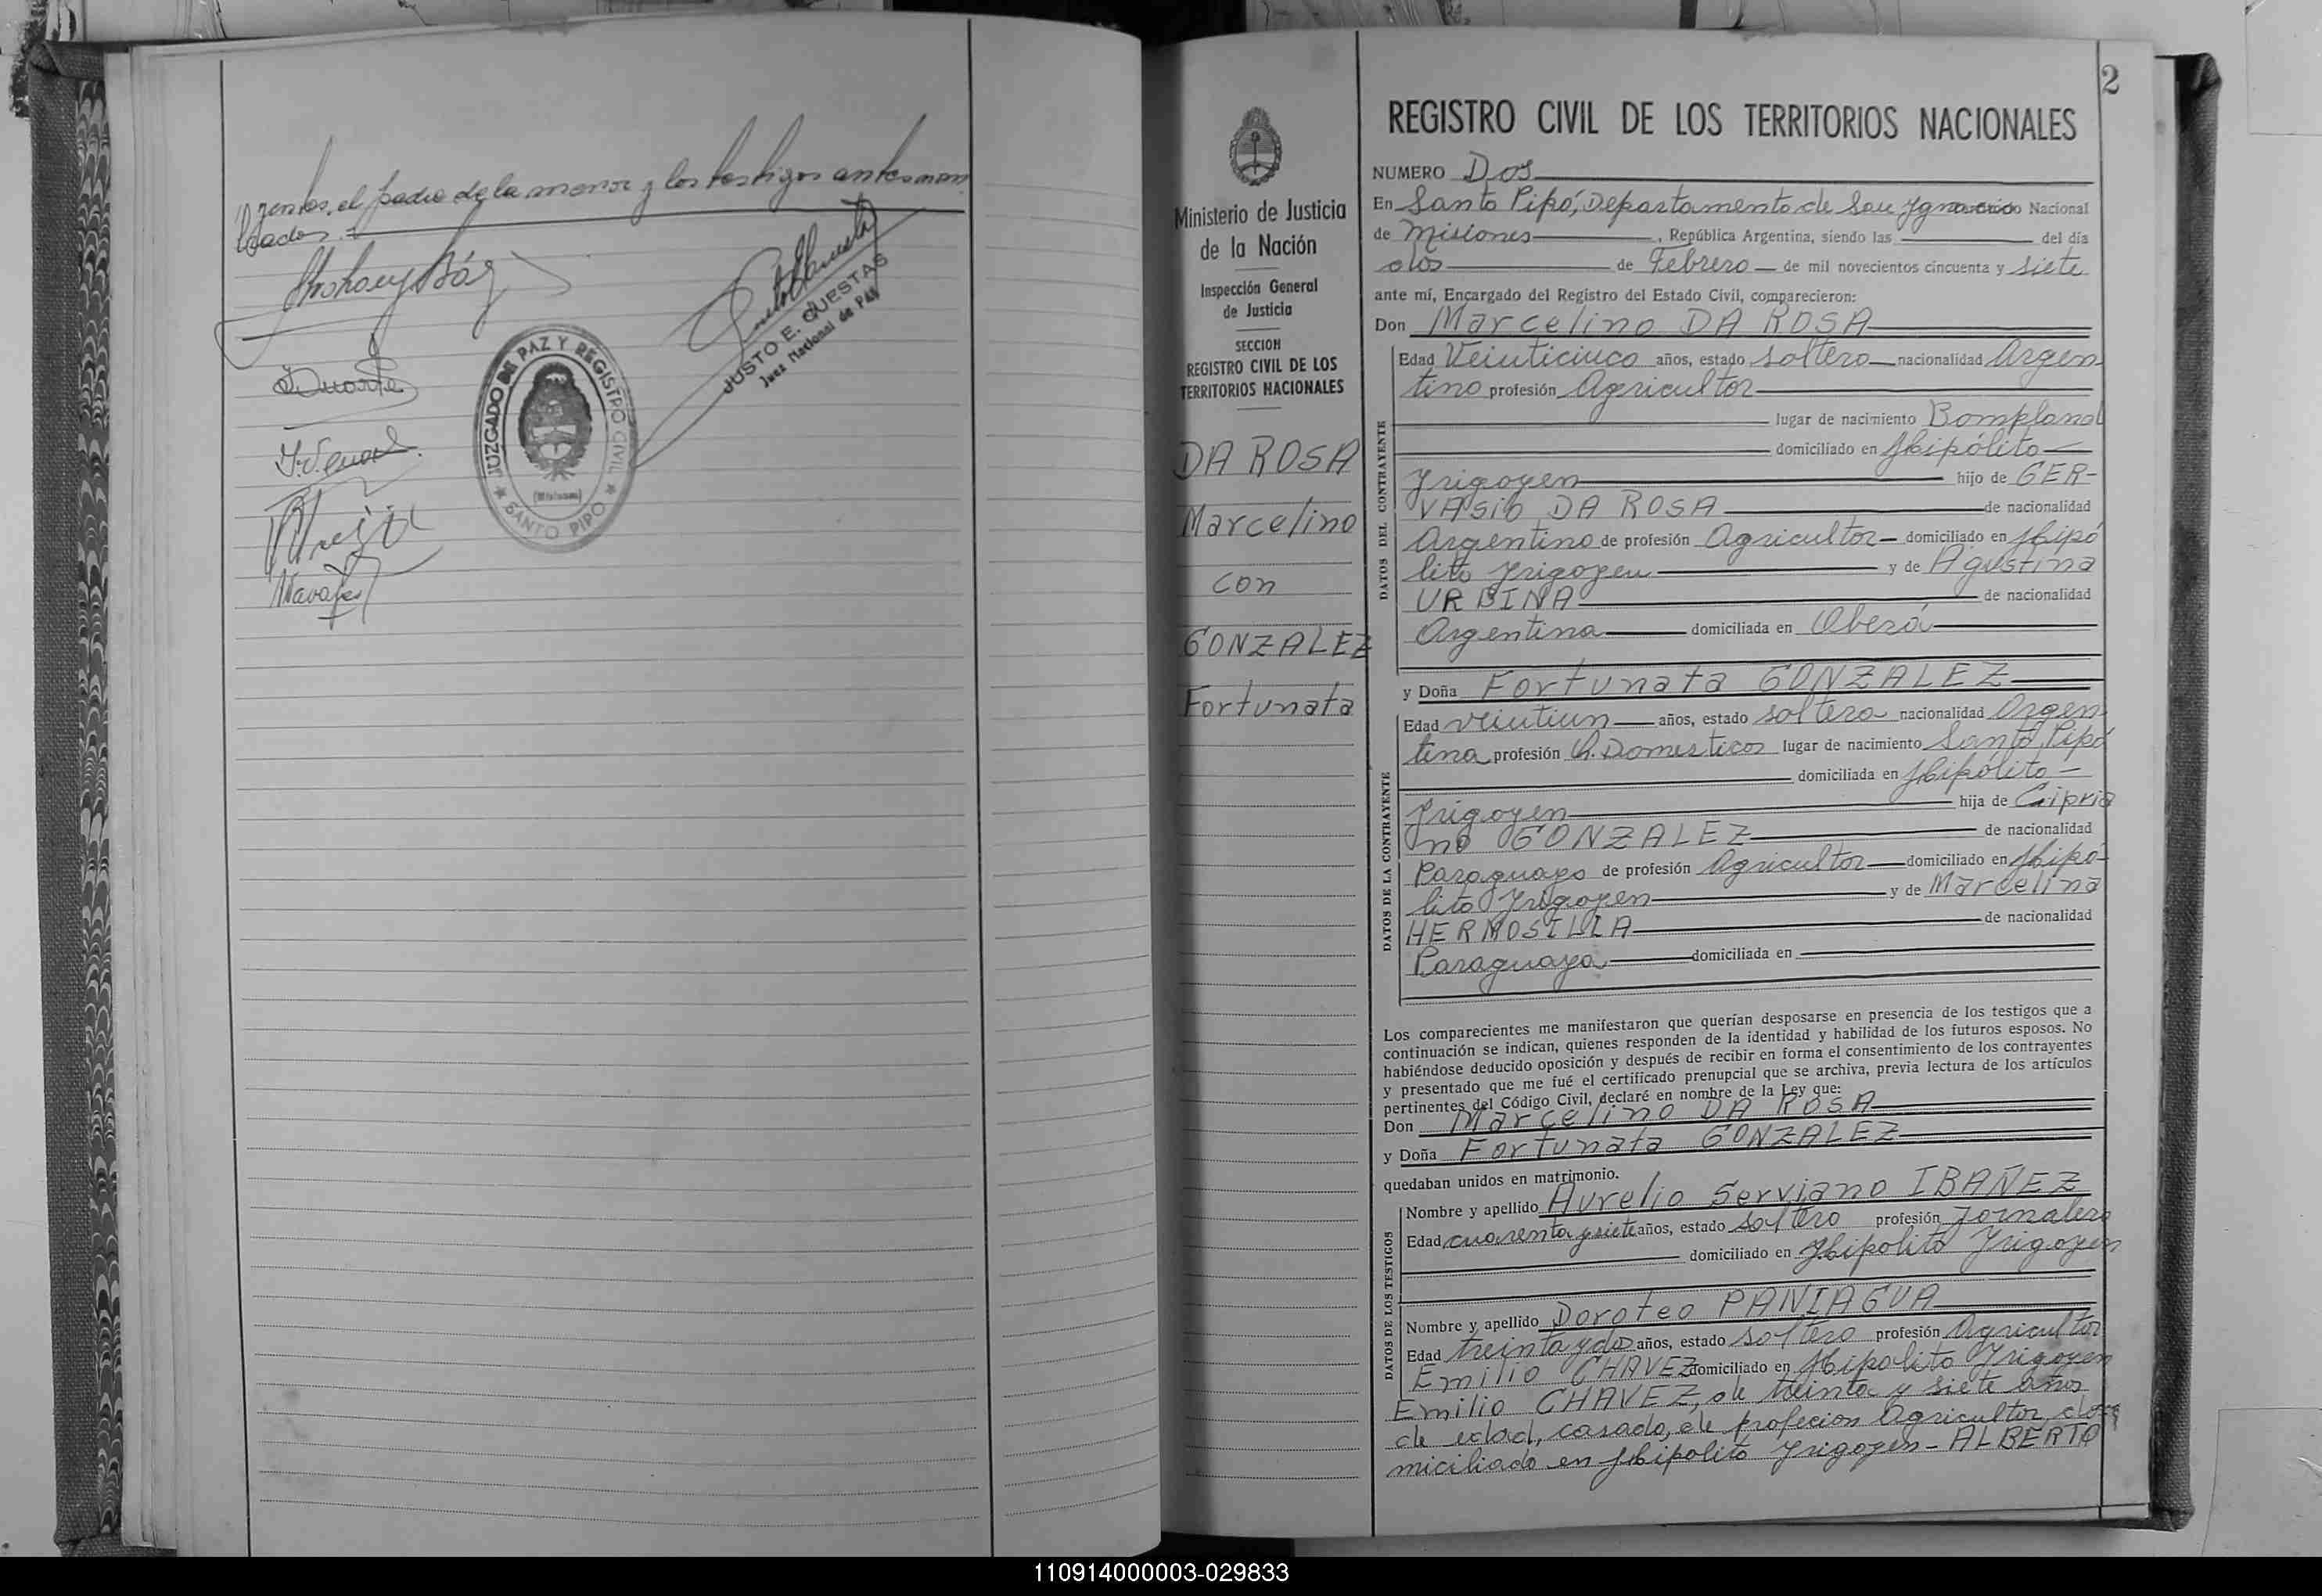 yentes, el padre de la menor y los testigos antes men
cionados.
Duarte
JUZGADO DE PAZ Y REGISTRO CIVIL
(Misiones)
SANTO PIPO
JUSTO E. CUESTAS
Juez Nacional de Paz
2
Ministerio de Justicia
de la Nación
Inspección General
de Justicia
SECCION
REGISTRO CIVIL DE LOS
TERRITORIOS NACIONALES
DA ROSA
Marcelino
con
GONZALEZ
Fortunata
REGISTRO CIVIL DE LOS TERRITORIOS NACIONALES
NUMERO Dos
En Santo Pipó, Departamento de San Ygnacio Nacional
de Misiones, República Argentina, siendo las del día
dos de Febrero de mil novecientos cincuenta y siete
ante mí, Encargado del Registro del Estado Civil, comparecieron:
Don Marcelino DA ROSA
DATOS DEL CONTRAYENTE
Edad Veinticinco años, estado soltero nacionalidad Argen
tino profesión Agricultor
lugar de nacimiento Bompland
domiciliado en Hipólito
Yrigoyen hijo de GER-
VASIO DA ROSA de nacionalidad
Argentino de profesión Agricultor domiciliado en Hipó
lito Yrigoyen y de Agustina
URBINA de nacionalidad
Argentina domiciliada en Oberá
y Doña Fortunata GONZALEZ
DATOS DE LA CONTRAYENTE
Edad Veintiun años, estado soltera nacionalidad Argen
tina profesión Q. Domesticos lugar de nacimiento Santo Pipó
domiciliada en Hipólito
Yrigoyen hija de Cipria
no GONZALEZ de nacionalidad
Paraguayo de profesión Agricultor domiciliado en Hipó-
lito Yrigoyen y de Marcelina
HERMOSILLA de nacionalidad
Paraguaya domiciliada en
Los comparecientes me manifestaron que querían desposarse en presencia de los testigos que a
continuación se indican, quienes responden de la identidad y habilidad de los futuros esposos. No
habiéndose deducido oposición y después de recibir en forma el consentimiento de los contrayentes
y presentado que me fué el certificado prenupcial que se archiva, previa lectura de los artículos
pertinentes del Código Civil, declaré en nombre de la Ley que:
Don Marcelino DA ROSA
y Doña Fortunata GONZALEZ
quedaban unidos en matrimonio.
DATOS DE LOS TESTIGOS
Nombre y apellido Aurelio Serviano IBAÑEZ
Edad cuarenta y siete años, estado soltero profesión Jornalero
domiciliado en Hipolito Yrigoyen
Nombre y apellido Doroteo PANIAGUA
Edad treinta y dos años, estado soltero profesión Agricultor
Emilio CHAVEZ domiciliado en Hipolito Yrigoyen
Emilio CHAVEZ, de treinta y siete años
de edad, casado, de profecion Agricultor, do
miciliado en Hipolito Yrigoyen - ALBERTO
110914000003-029833